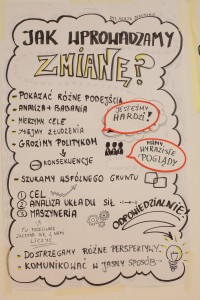 JAK WPROWADZAMY
ZMIANĘ?
- POKAZAĆ RÓŻNE PODEJŚCIA
- ANALIZA + BADANIA
- MIERZYMY CELE
- ZŁUDZENIA
- GROZIMY POLITYKOM
KONSEKWENCJE
JESTEŚMY
HARDZI!
MAMY
WYRAZISTE
POGLĄDY
- SZUKAMY WSPÓLNEGO GRUNTU
1 CEL
2 ANALIZA UKŁADU SIŁ
3 MASZYNERIA
ODPOWIEDZIALNIE!
- DOSTRZEGAMY RÓŻNE PERSPEKTYWY
- KOMUNIKOWAĆ W JASNY SPOSÓB